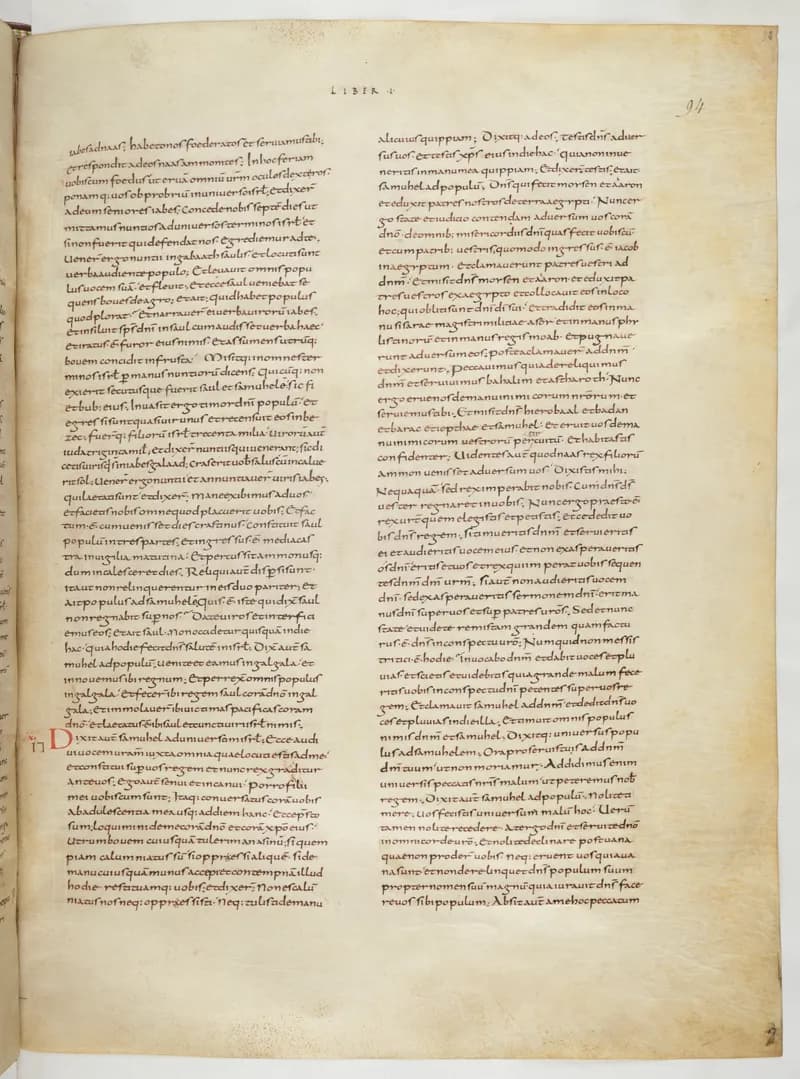 LIBER ·I·
94
iabes ad naas; habeto nos foederatos et seruiemus tibi;
et respondit ad eos naas ammonites; In hoc feriam
uobiscum foedus ut eruā omniū urm̄ oculos dexteros
ponamq: uos obprobriū in uniuerso isrl̄; Et dixer̄
ad eum seniores iabes; Concede nobis septē dies ut
mittamus nuntios ad uniuersos terminos isrl̄ et
si non fuerit qui defendat nos; egrediemur ad te;
Uener̄ ergo nuntii in gabaath saulis; et locuti sunt
uerba audiente populo; Et leuauit omnis popu
lus uocem suā et fleuit; et ecce saul ueniebat se
quens boues de agro; et ait; quid habet populus
quod plorat; Et narrauer̄ ei uerba uirorū iabes;
et insiluit sps̄ dnī in saul cum audisset uerba haec
et iratus ē furor eius nimis; Et assumens utrūq:
bouem concidit in frusta; Misitq: in omnes ter
minos isrl̄ p manus nuntiorū dicens; Quicūq: non
exierit secutusque fuerit saul et samuhele; sic fi
et bub: eius; Inuasit ergo timor dnī populū et
egressi sunt quasi uir unus et recensuit eos in be
zec; fuerq: filiorū isrl̄ trecenta milia; Uirorū aūt
iuda triginta mil̄; et dixer̄ nuntiis qui uenerant; sic di
cetis uiris qui sunt in iabes galaad; Cras erit uob̄ salus cū incalue
rit sol; Uener̄ ergo nuntii et annuntiauer̄ uiris iabes;
qui laetati sunt et dixer̄; Mane exibimus ad uos
et facietis nobis omne quod placuerit uobis; Et fac
tum ē cum uenisset dies crastinus; Constituit saul
populū in tres partes; et ingressus ē media cas
tra in uigilia matutina; Et percussit ammon usq:
dum incalesceret dies; Reliqui aūt dispsi sunt
ita ut non relinquerentur in eis duo pariter; et
ait populus ad samuhele; Quis ē iste qui dixit saul
non regnabit sup nos; Date uiros et interfici
emus eos; Et ait saul; Non occidetur quisquā in die
hac quia hodie fecit dns̄ salutē in isrl̄; Dix̄ aūt sa
muhel ad populū; Uenite et eamus in galgala et
innouemus ibi regnum; Et perrex̄ omnis populus
in galgala; et fecer̄ ibi regem saul corā dnō in gal
gala; Et immolauer̄ ibi uictimas pacificas coram
dnō et laetatus ē ibi saul et cuncti uiri isrl̄ nimis;
17 Dixit aūt samuhel ad uniuersam isrl̄; Ecce audi
ui uocem uram̄ iuxta omnia quae locuti estis ad me
et constitui sup uos regem et nunc rex graditur
ante uos; Ego aūt senui et incanui; Porro filii
mei uobiscum sunt; Itaq: conuersatus corā uobis
ab adulescentia mea usq: ad diem hanc; et ecce psto
sum; loquimini de me corā dnō et corā xp̄o eius;
Utrum bouem cuiusquā tulerim an asinū; si quem
piam calumniatus sū; si oppressi aliquē; si de
manu cuiusquā munus accepi et contempnā illud
hodie restituamq: uobis; et dixer̄; Non es calū
niatus nos neq: oppressisti; Neq: tulisti de manu
alicuius quippiam; Dixitq: ad eos; testis dns̄ aduer
sus uos et testis xps̄ eius in die hac quia non inue
neritis in manu mea quippiam; Et dixer̄ testis; et ait
samuhel ad populū; Dns̄ qui fecit mosen et aaron
et eduxit patres nostros de terra aegypti; Nunc er
go state et iudicio contendam aduersum uos corā
dnō de omnib: misericordiis dnī quas fecit uobiscū
et cum patrib: uestris; quomodo ingressus ē iacob
in aegyptum; et clamauerunt patres uestri ad
dnm̄; Et misit dns̄ mosen et aaron et eduxit pa
tres uestros ex aegypto et collocauit eos in loco
hoc; qui obliti sunt dnī dī sui; et tradidit eos in ma
nu sisarae magistri militiae asor et in manus phy
listinorū et in manus regis moab; Et pugnaue
runt aduersum eos; postea clamauer̄ ad dnm̄
et dixerunt; Peccauimus quia dereliquimus
dnm̄ et seruiuimus bahalim et astharoth; Nunc
ergo erue nos de manu inimicorum nrōrum et
seruiemus tibi; Et misit dns̄ hierobaal et badan
et barac et iepthae et samuhel; Et eruit uos de ma
nu inimicorum uestrorū per circuitū; Et habitastis
confidenter; Uidentes aūt quod naas rex filiorū
ammon uenisset aduersum uos; Dixistis mihi;
Nequaquā sed rex imperabit nobis; Cum dns̄ ds̄
uester regnaret in uobis; Nunc ergo praesto ē
rex ur̄ quem elegistis et petistis; Ecce dedit uo
bis dns̄ regem; si timueritis dnm̄ et seruieritis
ei et audieritis uocem eius et non exasperaueritis
os dnī; eritis et uos et rex qui imperat uobis sequen
tes dnm̄ dm̄ urm̄; si aūt non audieritis uocem
dnī sed exasperaueritis sermonem dnī; erit ma
nus dnī super uos et sup patres uros̄; Sed et nunc
state et uidete rem istam grandem quam factu
rus ē dns̄ in conspectu uro̅; Numquid non messis
tritici ē hodie; Inuocabo dnm̄ et dabit uoces et plu
uias et scietis et uidebitis quia grande malum fece
ritis uobis in conspectu dnī petentes super uos re
gem; Et clamauit samuhel ad dnm̄ et dedit dns̄ uo
ces et pluuias in die illa; et timuit omnis populus
nimis dnm̄ et samuhel; Dixitq: uniuersus popu
lus ad samuhelem; Ora pro seruis tuis ad dnm̄
dm̄ tuum ut non moriamur; Addidimus enim
uniuersis peccatis nrīs malum ut peteremus nob̄
regem; Dixit aūt samuhel ad populū; Nolite ti
mere; uos fecistis uniuersum malū hoc; Uerū
tamen nolite recedere a tergo dnī et seruite dnō
in omni corde uro̅; et nolite declinare post uana
quae non proder̄ uobis neq: eruent uos quia ua
na sunt et non derelinquet dns̄ populum suum
propter nomen suū magnū quia iurauit dns̄ face
re uos sibi populum; Absit aūt a me hoc peccatum